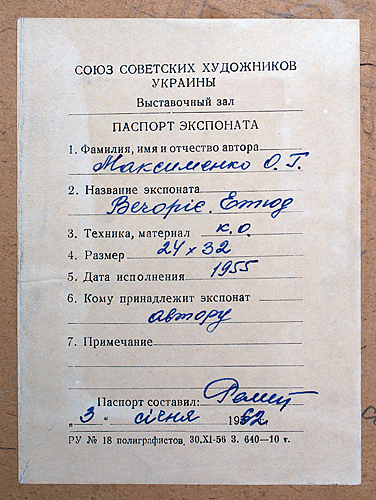 СОЮЗ СОВЕТСКИХ ХУДОЖНИКОВ
УКРАИНЫ
Выставочный зал
ПАСПОРТ ЭКСПОНАТА
1. Фамилия, имя и отчество автора
Максименко О. Г.
2. Название экспоната
Вечоріє. Етюд
3. Техника, материал к. о.
4. Размер 24 x 32
5. Дата исполнения 1955
6. Кому принадлежит экспонат
автору
7. Примечание
Паспорт составил:
„ 3 " січня 1962.
РУ № 18 полиграфистов. 30.XI-56 З. 640—10 т.